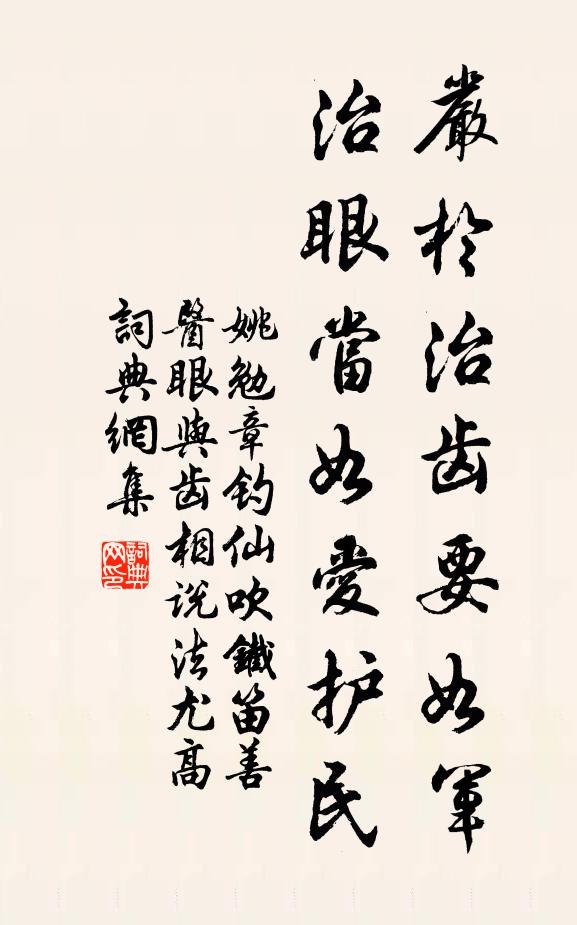 嚴於治齿要如軍
治眼當如愛护民
姚勉章钓仙吹鐵笛善
醫眼與齿相说法尤高
詞典網集
詞典
网印